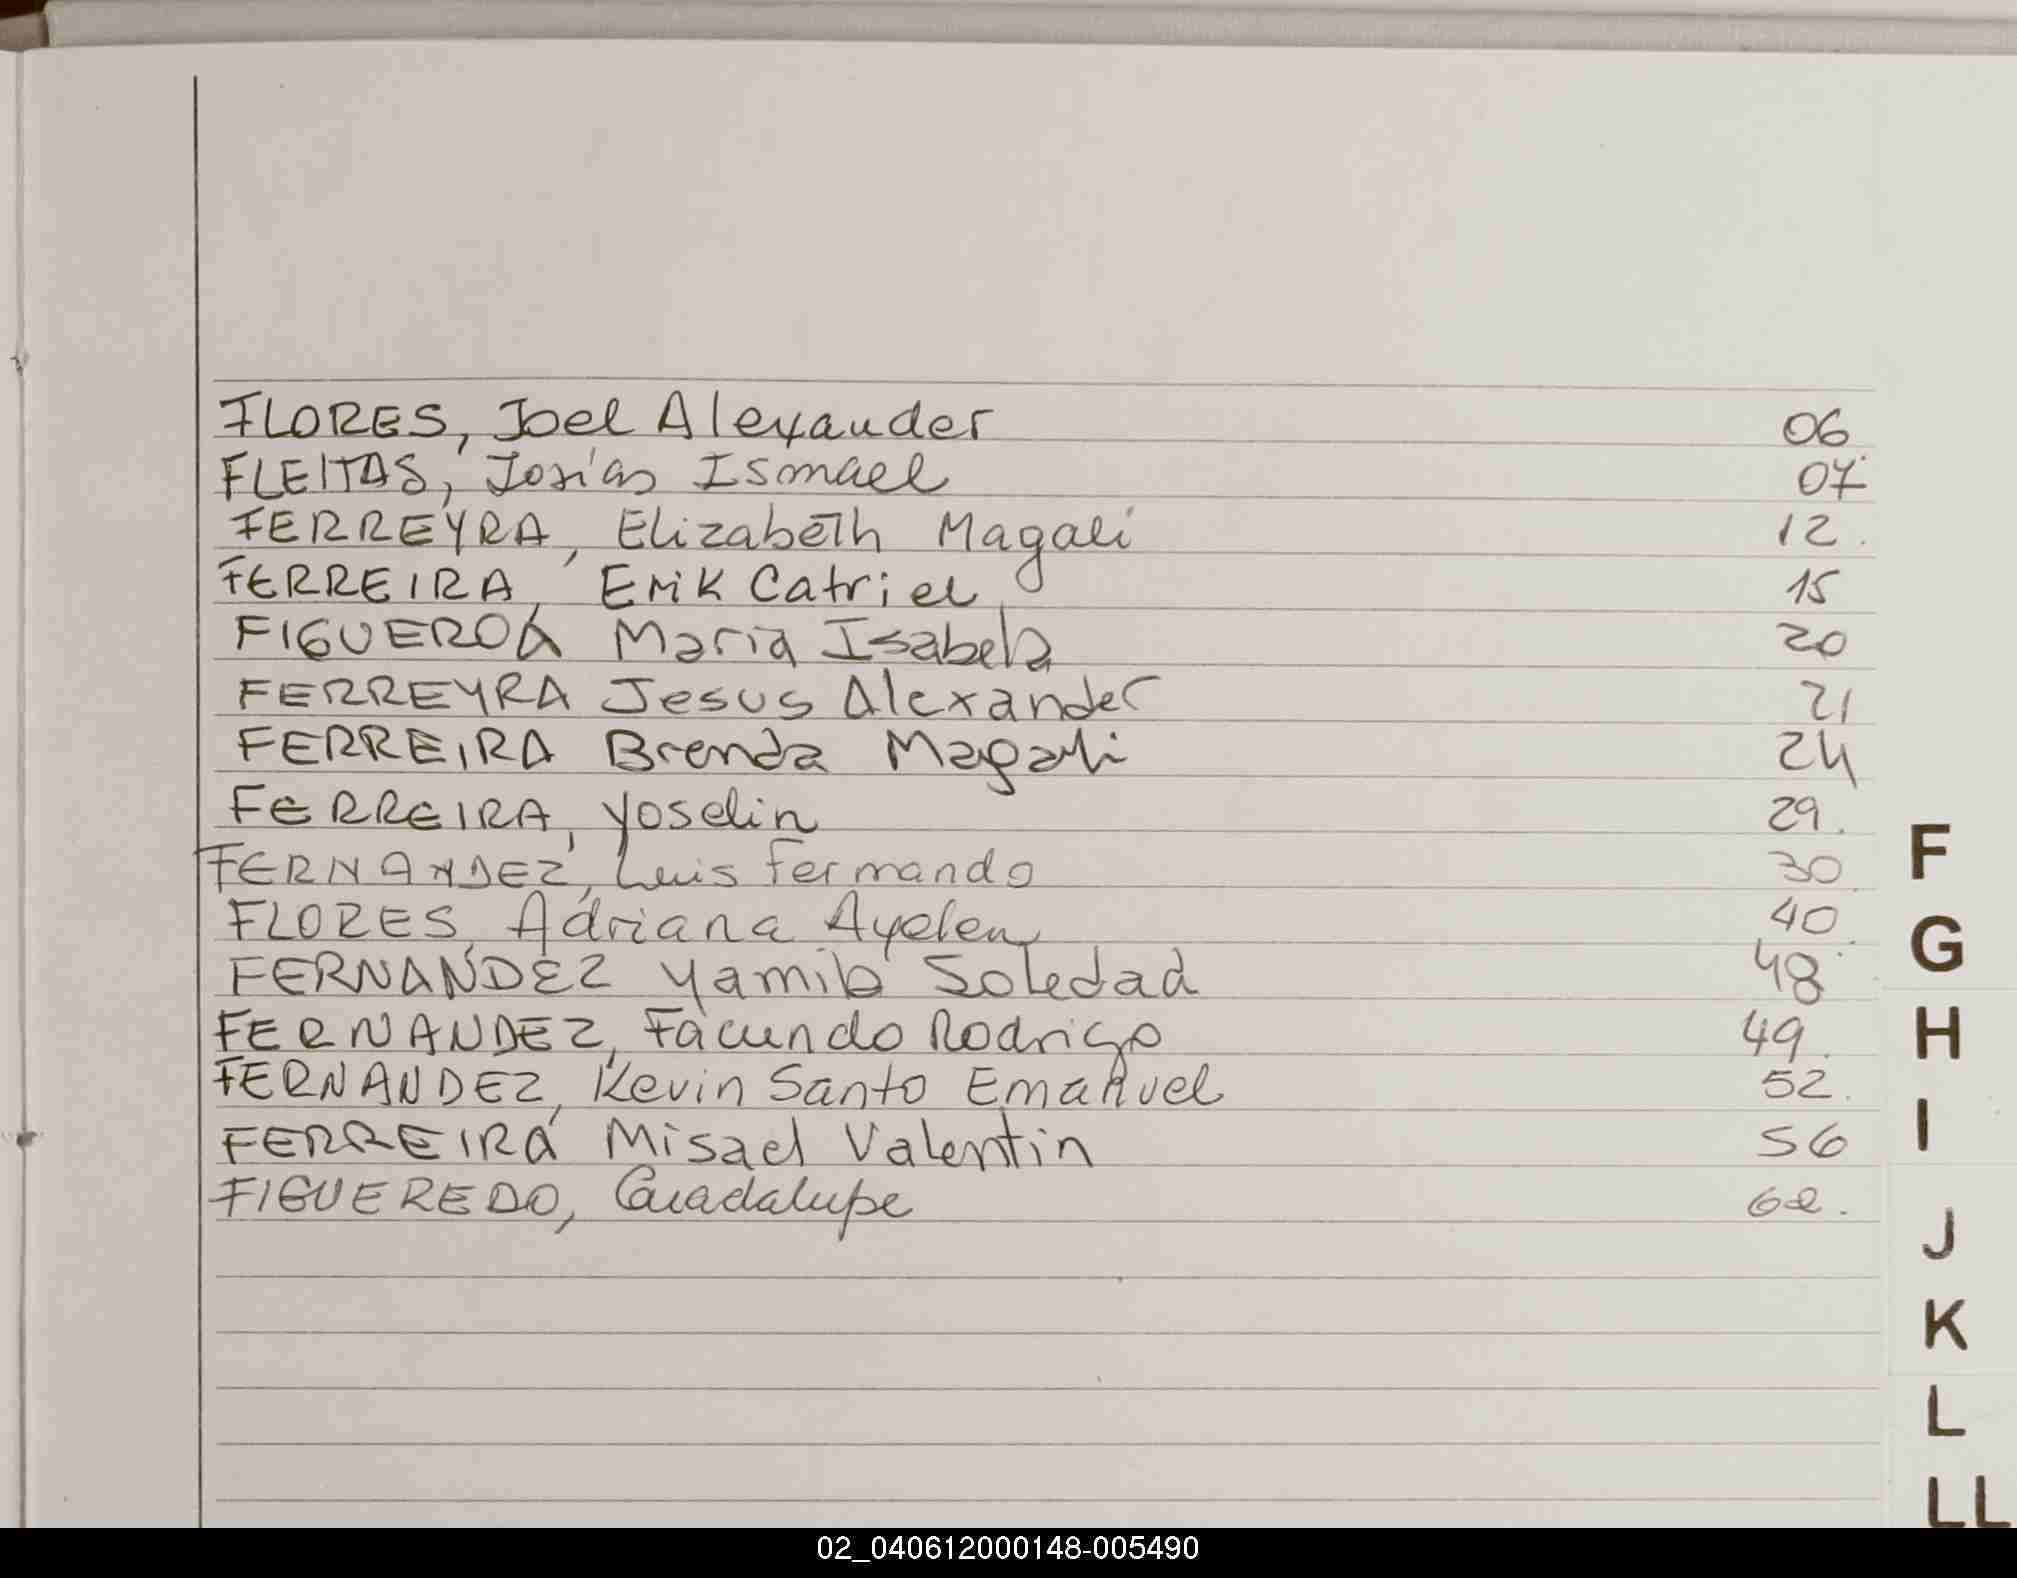 FLORES, Joel Alexander 06.
FLEITAS, Josías Ismael 07.
FERREYRA, Elizabeth Magalí 12.
FERREIRA, Erik Catriel 15
FIGUEROA María Isabela 20
FERREYRA Jesus Alexander 21
FERREIRA Brenda Magali 24
FERREIRA, Yoselin 29.
FERNANDEZ, Luis Fernando 30.
FLORES, Adriana Ayelen 40.
FERNANDEZ Yamila Soledad 48
FERNANDEZ, Facundo Rodrigo 49.
FERNANDEZ, Kevin Santo Emanuel 52.
FERREIRA Misael Valentin 56
FIGUEREDO, Guadalupe 62.
F
G
H
I
J
K
L
LL
02_040612000148-005490